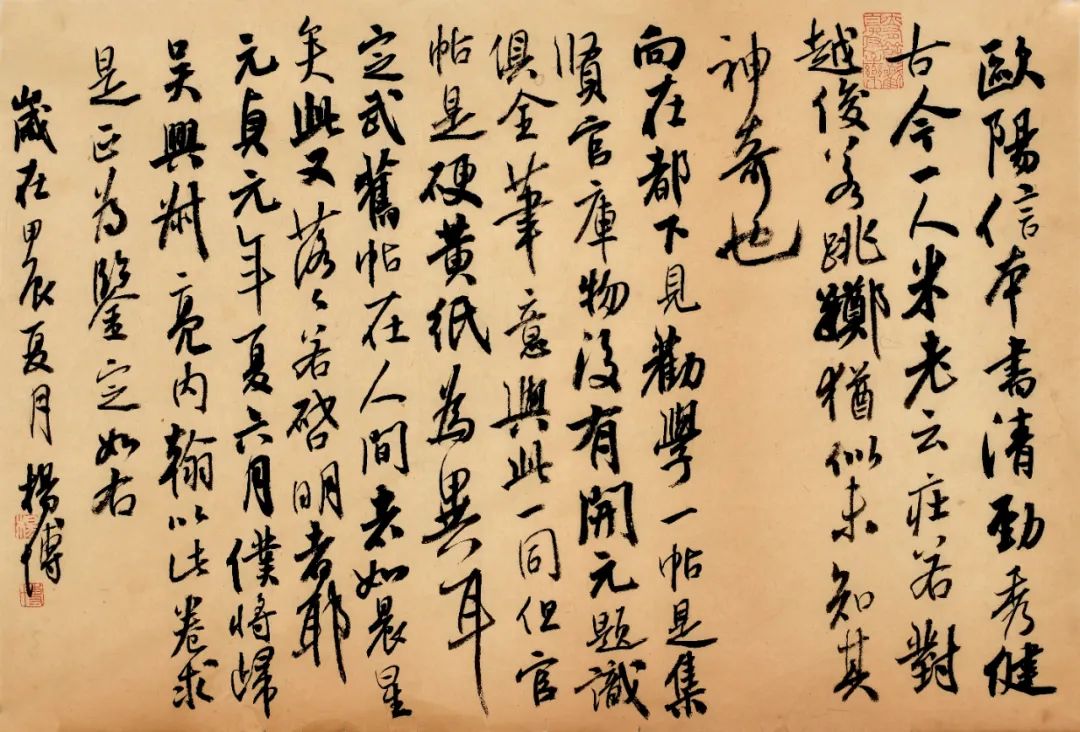 歐陽信本書清勁秀健
古今一人米老云莊若對
越俊若跳躑猶似未知其
神奇也
向在都下見勸學一帖是集
賢官庫物後有開元題識
俱全筆意與此一同但官
帖是硬黃紙為異耳
定武舊帖在人間者如晨星
矣此又落々若啓明者耶
元貞元年夏六月僕將歸
吳興叔亮內翰以此卷求
是正為鑒定如右
歲在甲辰夏月 楊